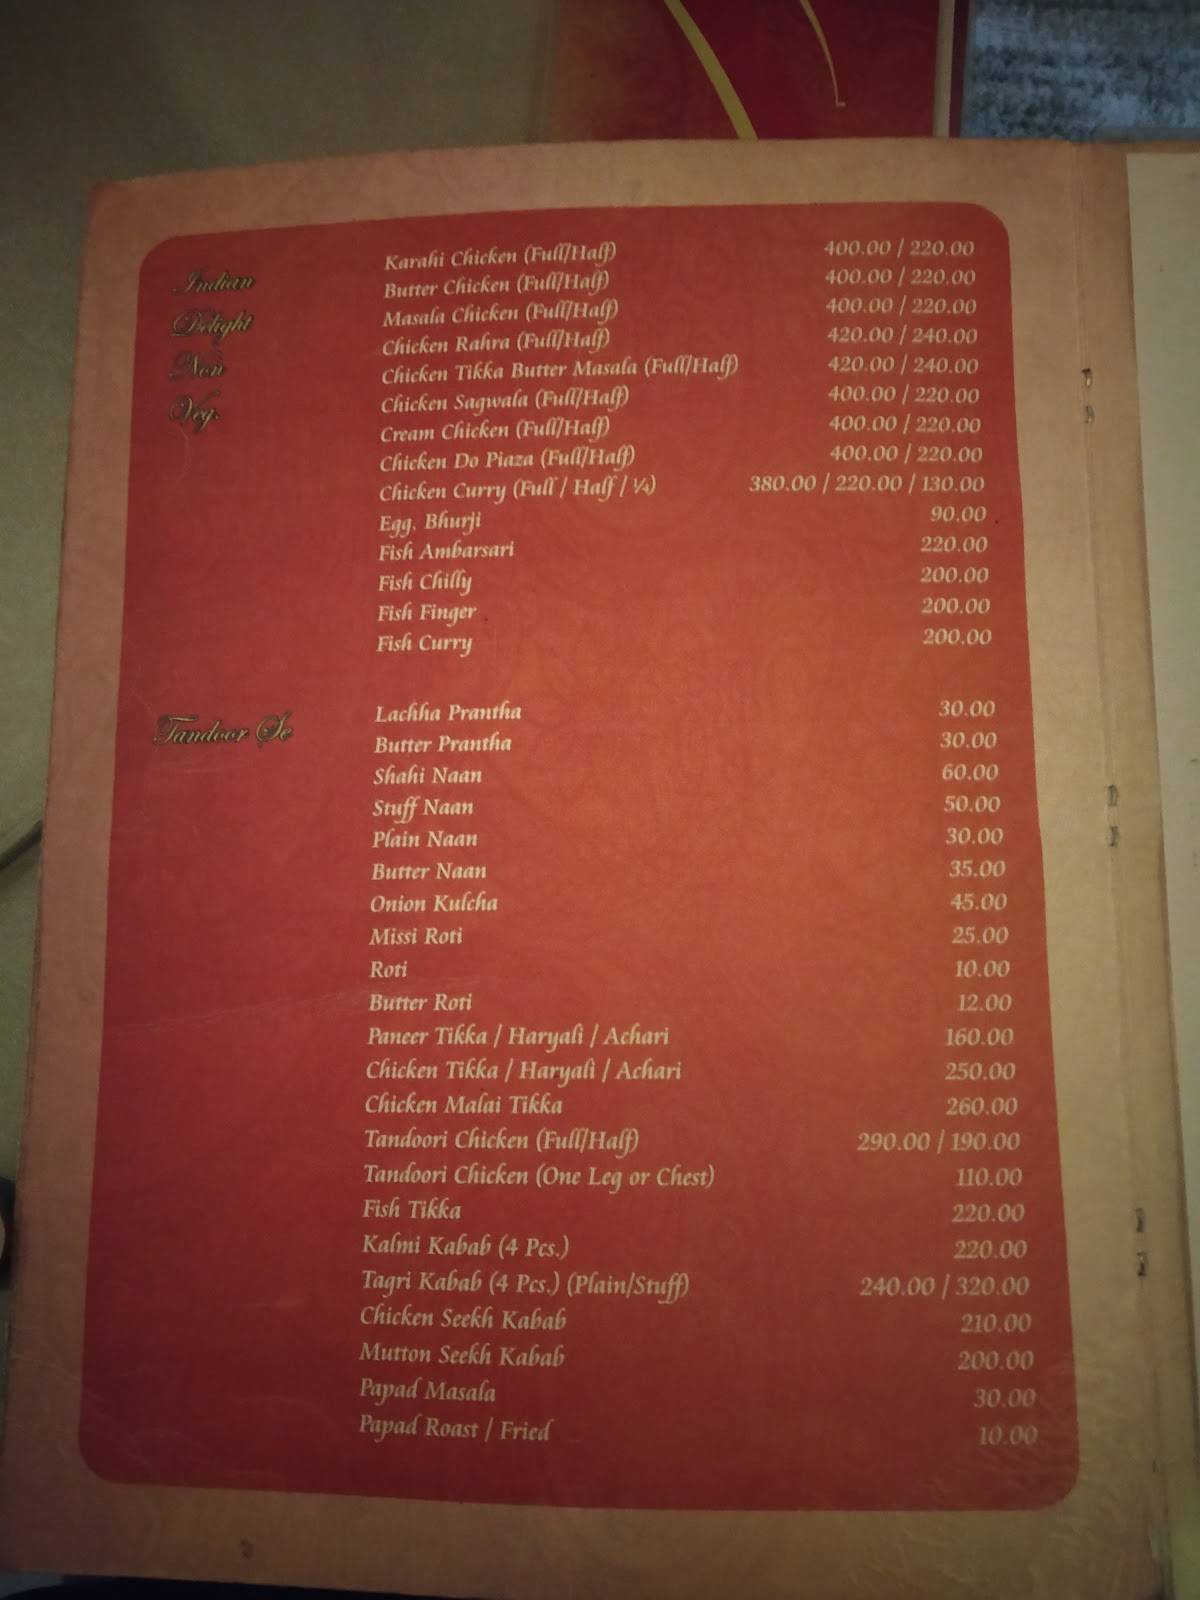 Indian
Delight
Non
Veg.
Karahi Chicken (Full/Half) 400.00 / 220.00
Butter Chicken (Full/Half) 400.00 / 220.00
Masala Chicken (Full/Half) 400.00 / 220.00
Chicken Rahra (Full/Half) 420.00 / 240.00
Chicken Tikka Butter Masala (Full/Half) 420.00 / 240.00
Chicken Sagwala (Full/Half) 400.00 / 220.00
Cream Chicken (Full/Half) 400.00 / 220.00
Chicken Do Piaza (Full/Half) 400.00 / 220.00
Chicken Curry (Full / Half / ¼) 380.00 / 220.00 / 130.00
Egg. Bhurji 90.00
Fish Ambarsari 220.00
Fish Chilly 200.00
Fish Finger 200.00
Fish Curry 200.00
Tandoor Se
Lachha Prantha 30.00
Butter Prantha 30.00
Shahi Naan 60.00
Stuff Naan 50.00
Plain Naan 30.00
Butter Naan 35.00
Onion Kulcha 45.00
Missi Roti 25.00
Roti 10.00
Butter Roti 12.00
Paneer Tikka / Haryali / Achari 160.00
Chicken Tikka / Haryali / Achari 250.00
Chicken Malai Tikka 260.00
Tandoori Chicken (Full/Half) 290.00 / 190.00
Tandoori Chicken (One Leg or Chest) 110.00
Fish Tikka 220.00
Kalmi Kabab (4 Pcs.) 220.00
Tagri Kabab (4 Pcs.) (Plain/Stuff) 240.00 / 320.00
Chicken Seekh Kabab 210.00
Mutton Seekh Kabab 200.00
Papad Masala 30.00
Papad Roast / Fried 10.00